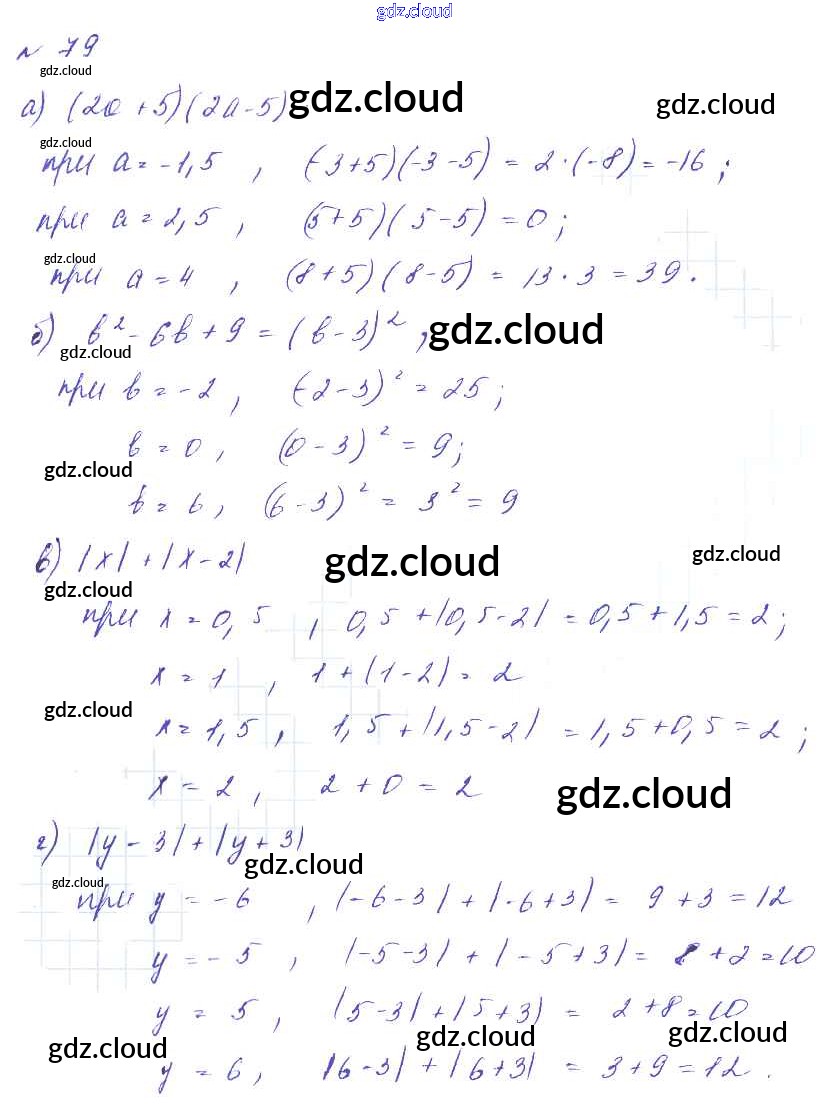 gdz.cloud
№ 79
gdz.cloud
а) (2a + 5)(2a - 5) gdz.cloud gdz.cloud
gdz.cloud
при a = -1,5 , (-3+5)(-3-5) = 2·(-8) = -16 ;
при a = 2,5 , (5+5)(5-5) = 0 ;
gdz.cloud
при a = 4 , (8+5)(8-5) = 13·3 = 39 .
б) b² - 6b + 9 = (b-3)² , gdz.cloud
gdz.cloud
при b = -2 , (-2-3)² = 25 ;
b = 0 , (0-3)² = 9 ;
gdz.cloud
b = 6 , (6-3)² = 3² = 9
в) |x| + |x-2| gdz.cloud gdz.cloud
gdz.cloud
при x = 0,5 , 0,5 + |0,5-2| = 0,5 + 1,5 = 2 ;
x = 1 , 1 + (1-2) = 2
gdz.cloud
x = 1,5 , 1,5 + |1,5-2| = 1,5 + 0,5 = 2 ;
x = 2 , 2 + 0 = 2 gdz.cloud
г) |y - 3| + |y + 3|
gdz.cloud
gdz.cloud
при y = -6 , |-6-3| + |-6+3| = 9 + 3 = 12
y = -5 , |-5-3| + |-5+3| = 8 + 2 = 10
y = 5 , |5-3| + |5+3| = 2+8 = 10
gdz.cloud gdz.cloud gdz.cloud
y = 6 , |6-3| + |6+3| = 3 + 9 = 12 .